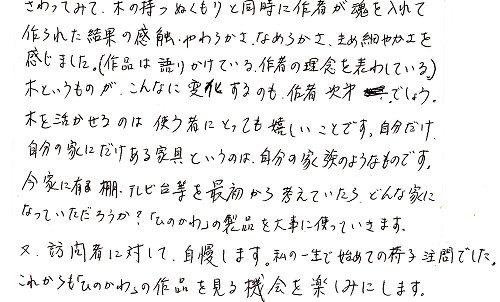 さわってみて、木の持つぬくもりと同時に作者が魂を入れて
作られた結果の感触、やわらかさ、なめらかさ、きめ細やかさを
感じました。(作品は語りかけている、作者の理念を表わしている)
木というものが、こんなに変化するのも、作者次第でしょう。
木を活かせるのは使う者にとっても嬉しいことです。自分だけ
自分の家にだけある家具というのは、自分の家族のようなものです。
今家に有る棚、テレビ台等を最初から考えていたら、どんな家に
なっていただろうか?「ひのかわ」の製品を大事に使っていきます。
又、訪問者に対して、自慢します。私の一生で始めての椅子注問でした。
これからも「ひのかわ」の作品を見る機会を楽しみにします。